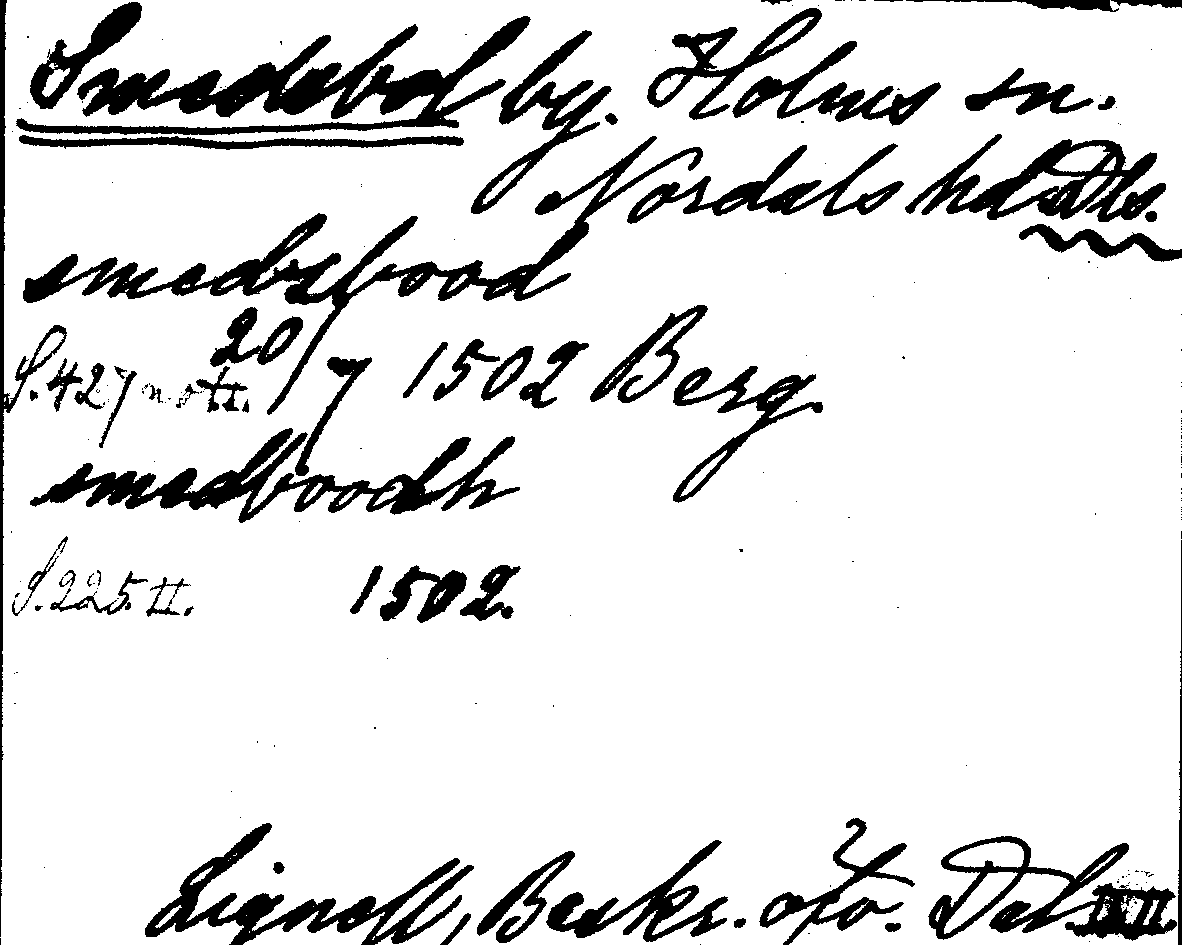 Smedebol by. Holms sn.
Nordals hd Dls.
smedsbood
S. 427 not I. 20/7 1502 Berg.
smedboodh
S. 225. II. 1502.
Lignell, Beskr. öfv. Dal. II.